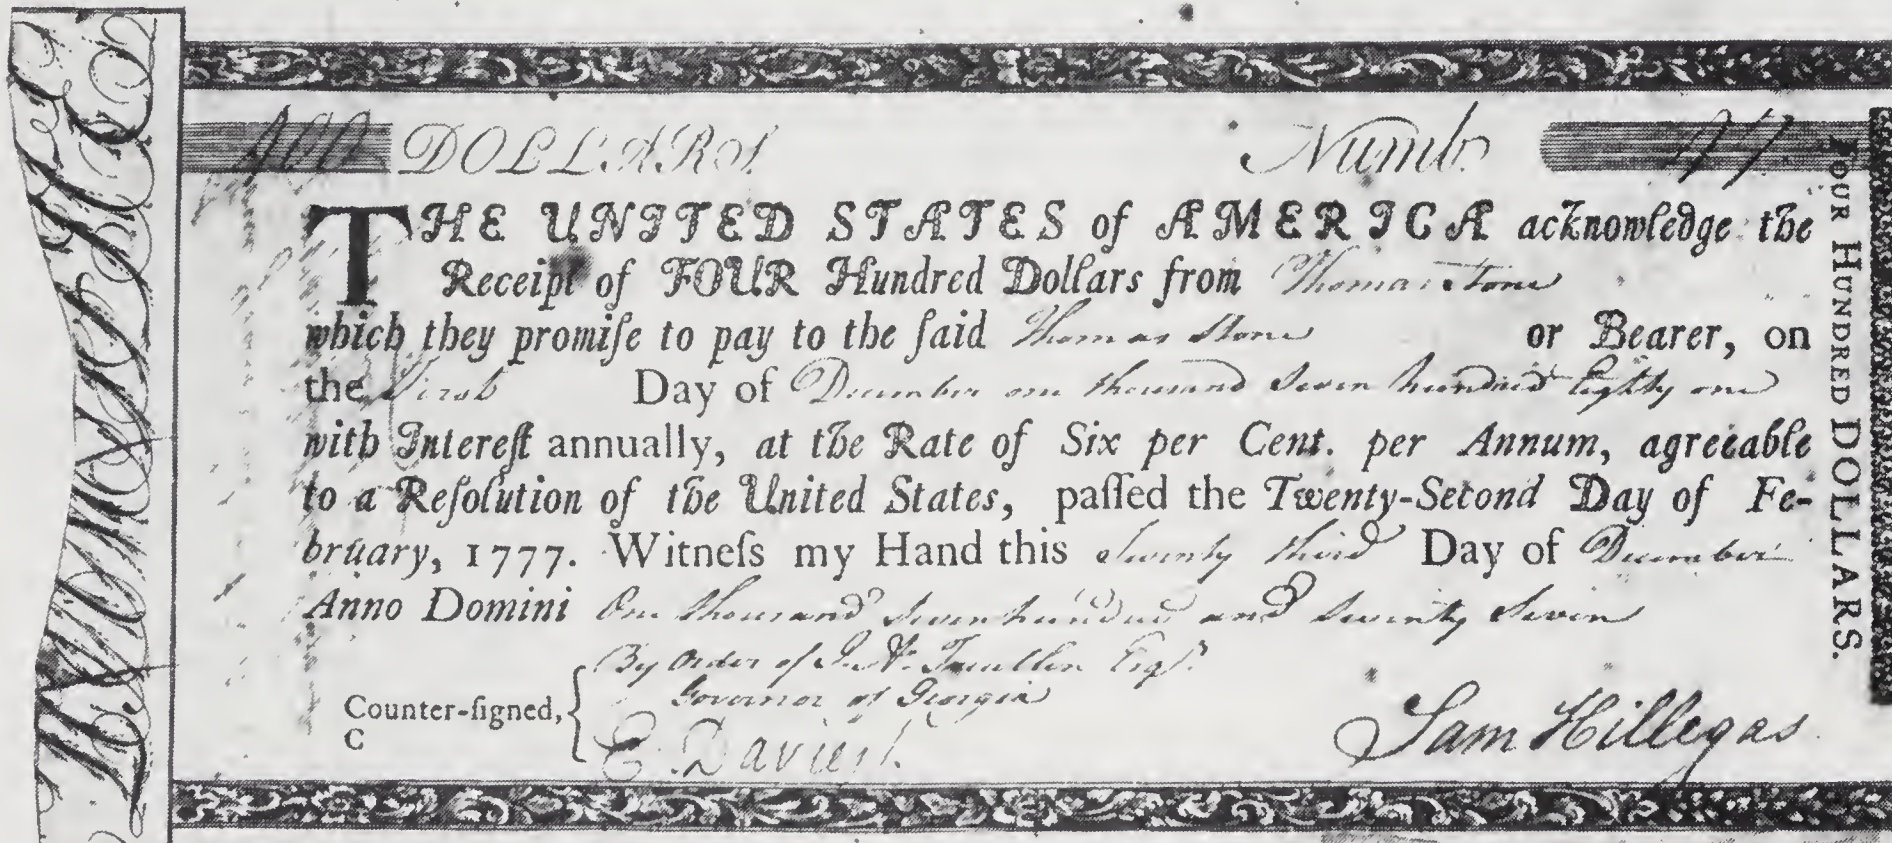 400 DOLLARS. Numb. 
THE UNITED STATES of AMERICA acknowledge the
Receipt of FOUR Hundred Dollars from Thomas Stone
which they promiſe to pay to the ſaid Thomas Stone or Bearer, on
the First Day of December one thousand Seven hundred Eighty one
with Intereſt annually, at the Rate of Six per Cent. per Annum, agreeable
to a Reſolution of the United States, paſſed the Twenty-Second Day of Fe-
bruary, 1777. Witneſs my Hand this twenty third Day of December
Anno Domini One thousand Seven hundred and Seventy Seven
By Order of Treutlen Esqr.
Governor of Georgia
Counter-ſigned,
C
E. Davies
Sam Hillegas
FOUR HUNDRED DOLLARS.